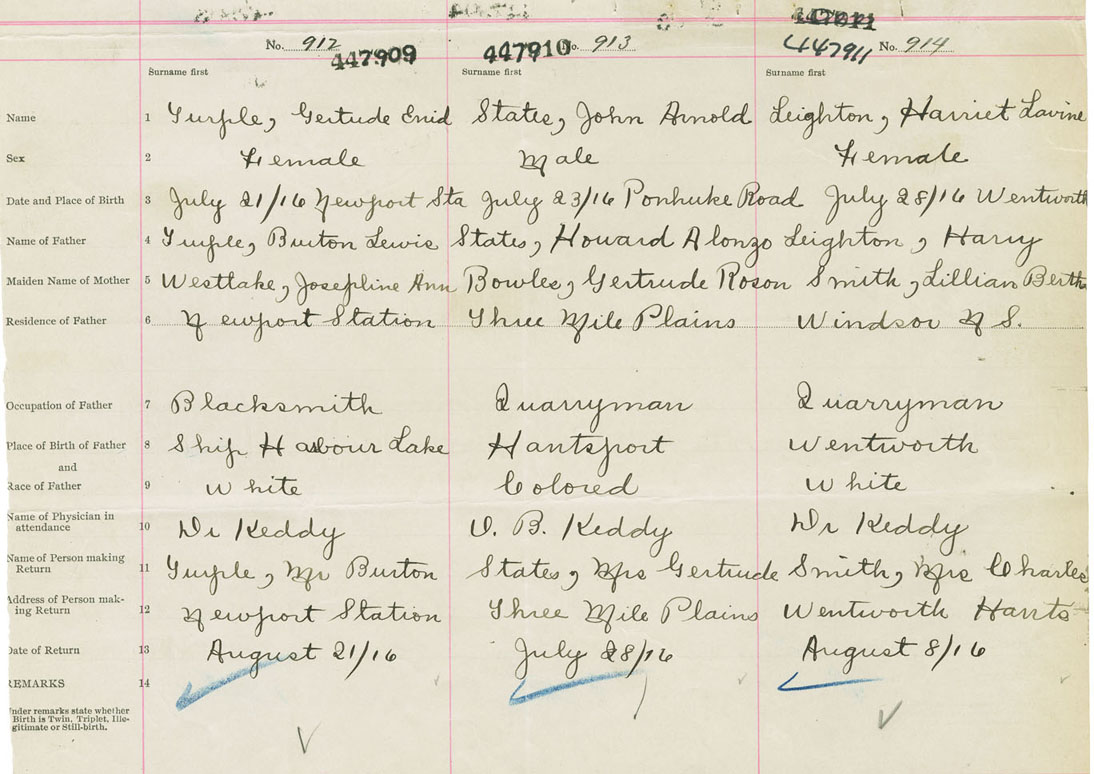 No. 912 447909 447910 No. 913 447911 No. 914
Surname first Surname first Surname first
Name 1 Turple, Gertude Enid States, John Arnold Leighton, Harriet Lavine
Sex 2 Female Male Female
Date and Place of Birth 3 July 21/16 Newport Sta July 23/16 Ponhuke Road July 28/16 Wentworth
Name of Father 4 Turple, Burton Lewis States, Howard Alonzo Leighton, Harry
Maiden Name of Mother 5 Westlake, Josepline Ann Bowles, Gertrude Roson Smith, Lillian Berth
Residence of Father 6 Newport Station Three Mile Plains Windsor N S.
Occupation of Father 7 Blacksmith Quarryman Quarryman
Place of Birth of Father 8 Ship Harbour Lake Hantsport Wentworth
and
Race of Father 9 White Colored White
Name of Physician in
attendance 10 Dr Keddy O. B. Keddy Dr Keddy
Name of Person making
Return 11 Turple, Mr Burton States, Mrs Gertrude Smith, Mrs Charles
Address of Person mak-
ing Return 12 Newport Station Three Mile Plains Wentworth Hants
Date of Return 13 August 21/16 July 28/16 August 8/16
REMARKS 14
Under remarks state whether
Birth is Twin, Triplet, Ille-
gitimate or Still-birth.